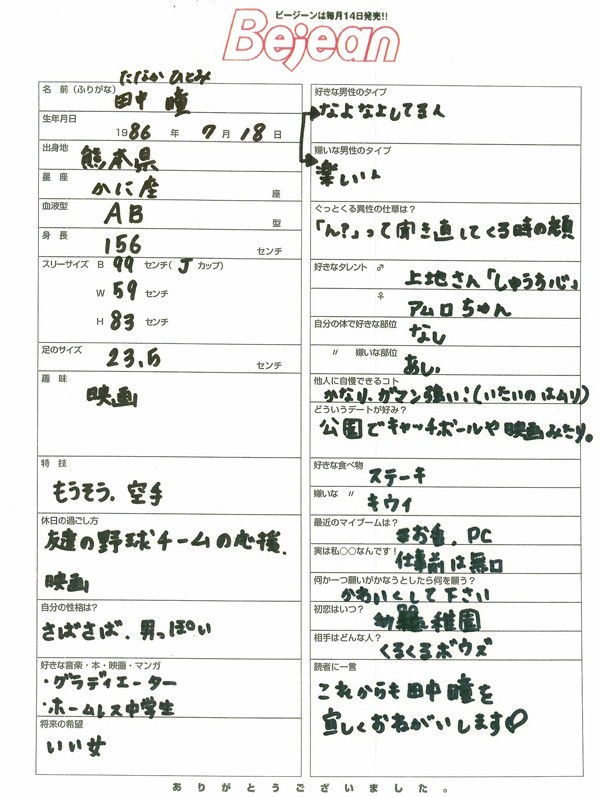 ビージーンは毎月14日発売!!
Bejean
たなか ひとみ
名 前(ふりがな) 田中 瞳
生年月日
1986 年 7 月 18 日
出身地 熊本県
星 座 かに座 座
血液型 AB 型
身 長 156 センチ
スリーサイズ B 99 センチ( J カップ)
W 59 センチ
H 83 センチ
足のサイズ 23.5 センチ
趣 味
映画
特 技
もうそう. 空手
休日の過ごし方
友達の野球チームの応援.
映画
自分の性格は?
さばさば. 男っぽい
好きな音楽・本・映画・マンガ
・グラディエーター
・ホームレス中学生
将来の希望
いい女
好きな男性のタイプ
なよなよしてる人
嫌いな男性のタイプ
楽しい人
ぐっとくる異性の仕草は?
「ん?」って聞き直してくる時の顔
好きなタレント ♂ 上地さん「しゅうち心」
♀ アムロちゃん
自分の体で好きな部位
なし
〃 嫌いな部位
あし.
他人に自慢できるコト
かなり、ガマン強い!(いたいのはムリ)
どういうデートが好み?
公園でキャッチボールや映画みたり。
好きな食べ物 ステーキ
嫌いな 〃 キウイ
最近のマイブームは? お香. PC
実は私○○なんです! 仕事前は無口
何か一つ願いがかなうとしたら何を願う?
かわいくして下さい
初恋はいつ? 幼稚園
相手はどんな人? くるくるボウズ
読者に一言
これからも田中瞳を
宜しくおねがいします♡
ありがとうございました。